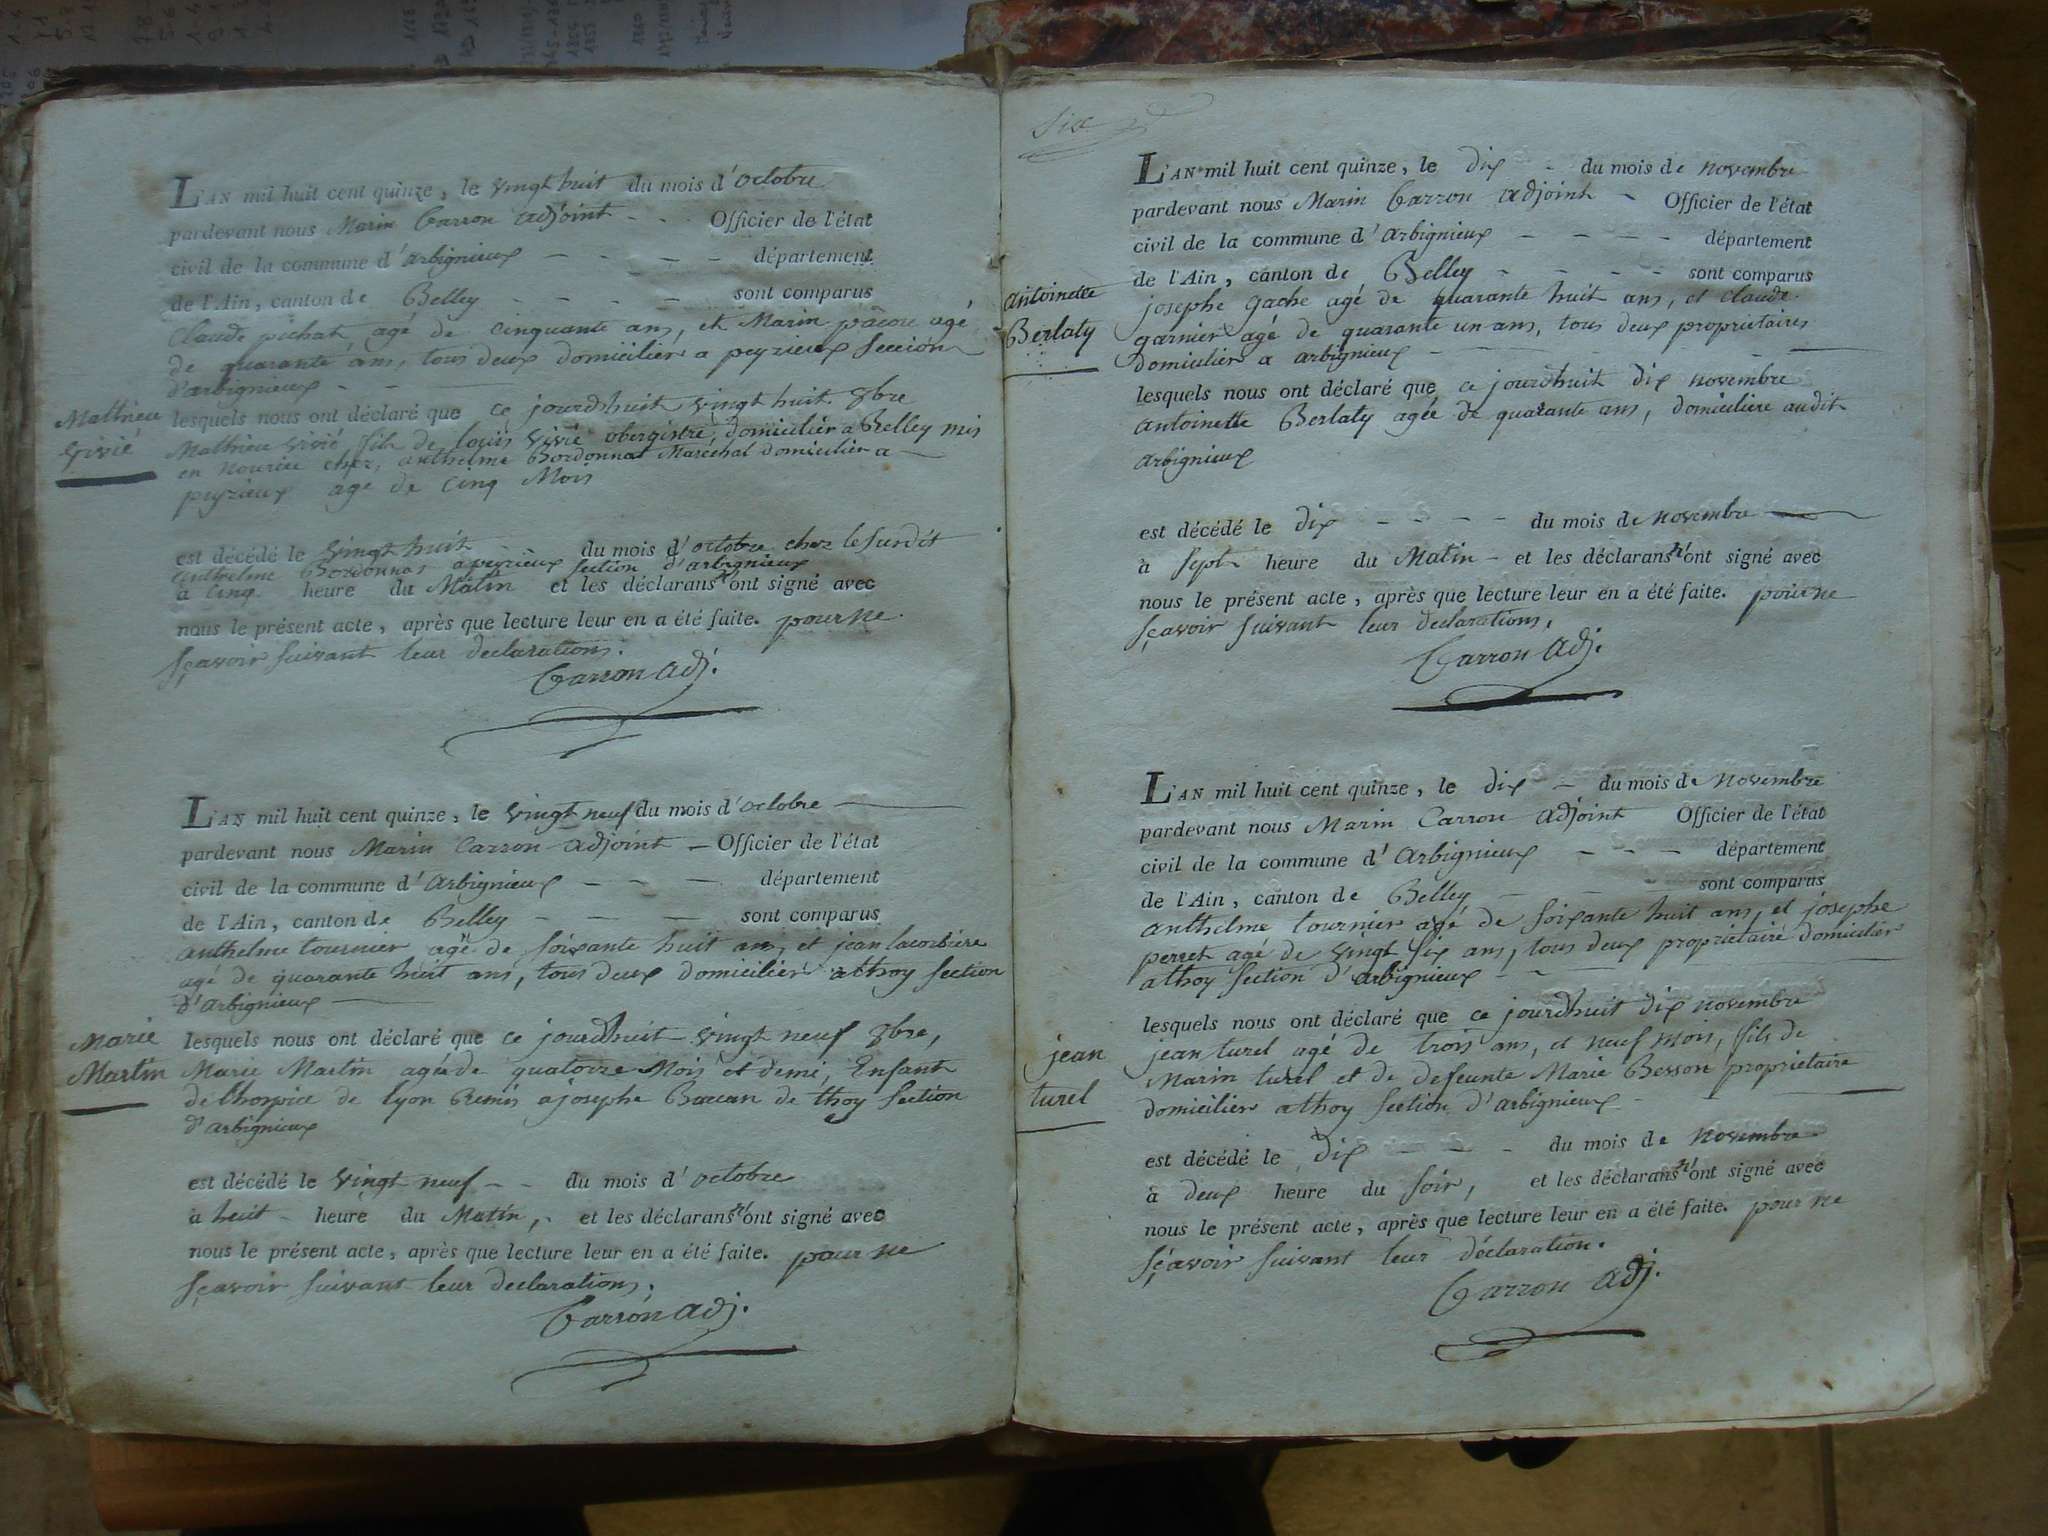 L'AN mil huit cent quinze, le vingt huit du mois d'octobre
pardevant nous Marin Carron adjoint - - Officier de l'état
civil de la commune d'arbignieux - - - - département
de l'Ain, canton de Belley - - - - sont comparus
Claude pichat agé de cinquante ans, et Marin pâcou agé
de quarante ans, tous deux domicilier a peyzieux section
d'arbignieux - -
Mathieu
vivié
lesquels nous ont déclaré que ce jourdhuit vingt huit 8bre
Mathieu vivié fils de louis vivié obergistre, domicilier a Belley mis
en nourice chez, anthelme Bordonnat Marechal domicilier a
peyzieux agé de cinq Mois
est décédé le vingt huit - du mois d'octobre chez le surdit
anthelme Bordonnas a peyzieux section d'arbignieux
à cinq heure du Matin et les déclarans n'ont signé avec
nous le présent acte, après que lecture leur en a été faite. pour ne
sçavoir suivant leur declarations.
Carron adj.
L'AN mil huit cent quinze, le vingt neuf du mois d'octobre
pardevant nous Marin Carron adjoint - Officier de l'état
civil de la commune d'arbignieux - - - département
de l'Ain, canton de Belley - - - sont comparus
anthelme tournier agé de soixante huit ans, et jean lacorbiere
agé de quarante huit ans, tous deux domicilier a thoy section
d'arbignieux
Marie
Martin
lesquels nous ont déclaré que ce jourdhuit vingt neuf 8bre,
Marie Martin agée de quatorze Mois et demi, Enfant
de lhospice de lyon Remis a josephe Baucan de thoy section
d'arbignieux
est décédé le vingt neuf - - du mois d'octobre
à huit - heure du Matin, - et les déclarans n'ont signé avec
nous le présent acte, après que lecture leur en a été faite. pour ne
sçavoir suivant leur declarations.
Carron adj.
six
L'AN mil huit cent quinze, le dix - du mois de novembre
pardevant nous Marin Carron adjoint - Officier de l'état
civil de la commune d'arbignieux - - - - département
de l'Ain, canton de Belley - - - - sont comparus
antoinette
Berlaty
josephe gache agé de quarante huit ans, et claude
garnier agé de quarante un ans, tous deux proprietaires
domicilier a arbignieux - - -
lesquels nous ont déclaré que ce jourdhuit dix novembre
antoinette Berlaty agée de quarante ans, domiciliere audit
arbignieux
est décédé le dix - - - - du mois de novembre
à sept heure du Matin - et les déclarans n'ont signé avec
nous le présent acte, après que lecture leur en a été faite. pour ne
sçavoir suivant leur declarations.
Carron adj.
L'AN mil huit cent quinze, le dix - du mois de novembre
pardevant nous Marin Carron adjoint Officier de l'état
civil de la commune d'arbignieux - - - département
de l'Ain, canton de Belley - - - sont comparus
anthelme tournier agé de soixante huit ans, et josephe
perret agé de vingt six ans, tous deux proprietaire domicilier
a thoy section d'arbignieux - -
lesquels nous ont déclaré que ce jourdhuit dix novembre
jean
turel
jean turel agé de trois ans, et neuf mois, fils de
Marin turel et de defeunte Marie Besson proprietaire
domicilier a thoy section d'arbignieux -
est décédé le dix - - - du mois de novembre
à deux heure du soir, et les déclarans n'ont signé avec
nous le présent acte, après que lecture leur en a été faite. pour ne
sçavoir suivant leur déclaration.
Carron adj.